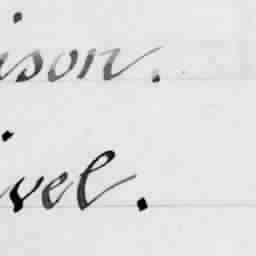 ison.
ivel.